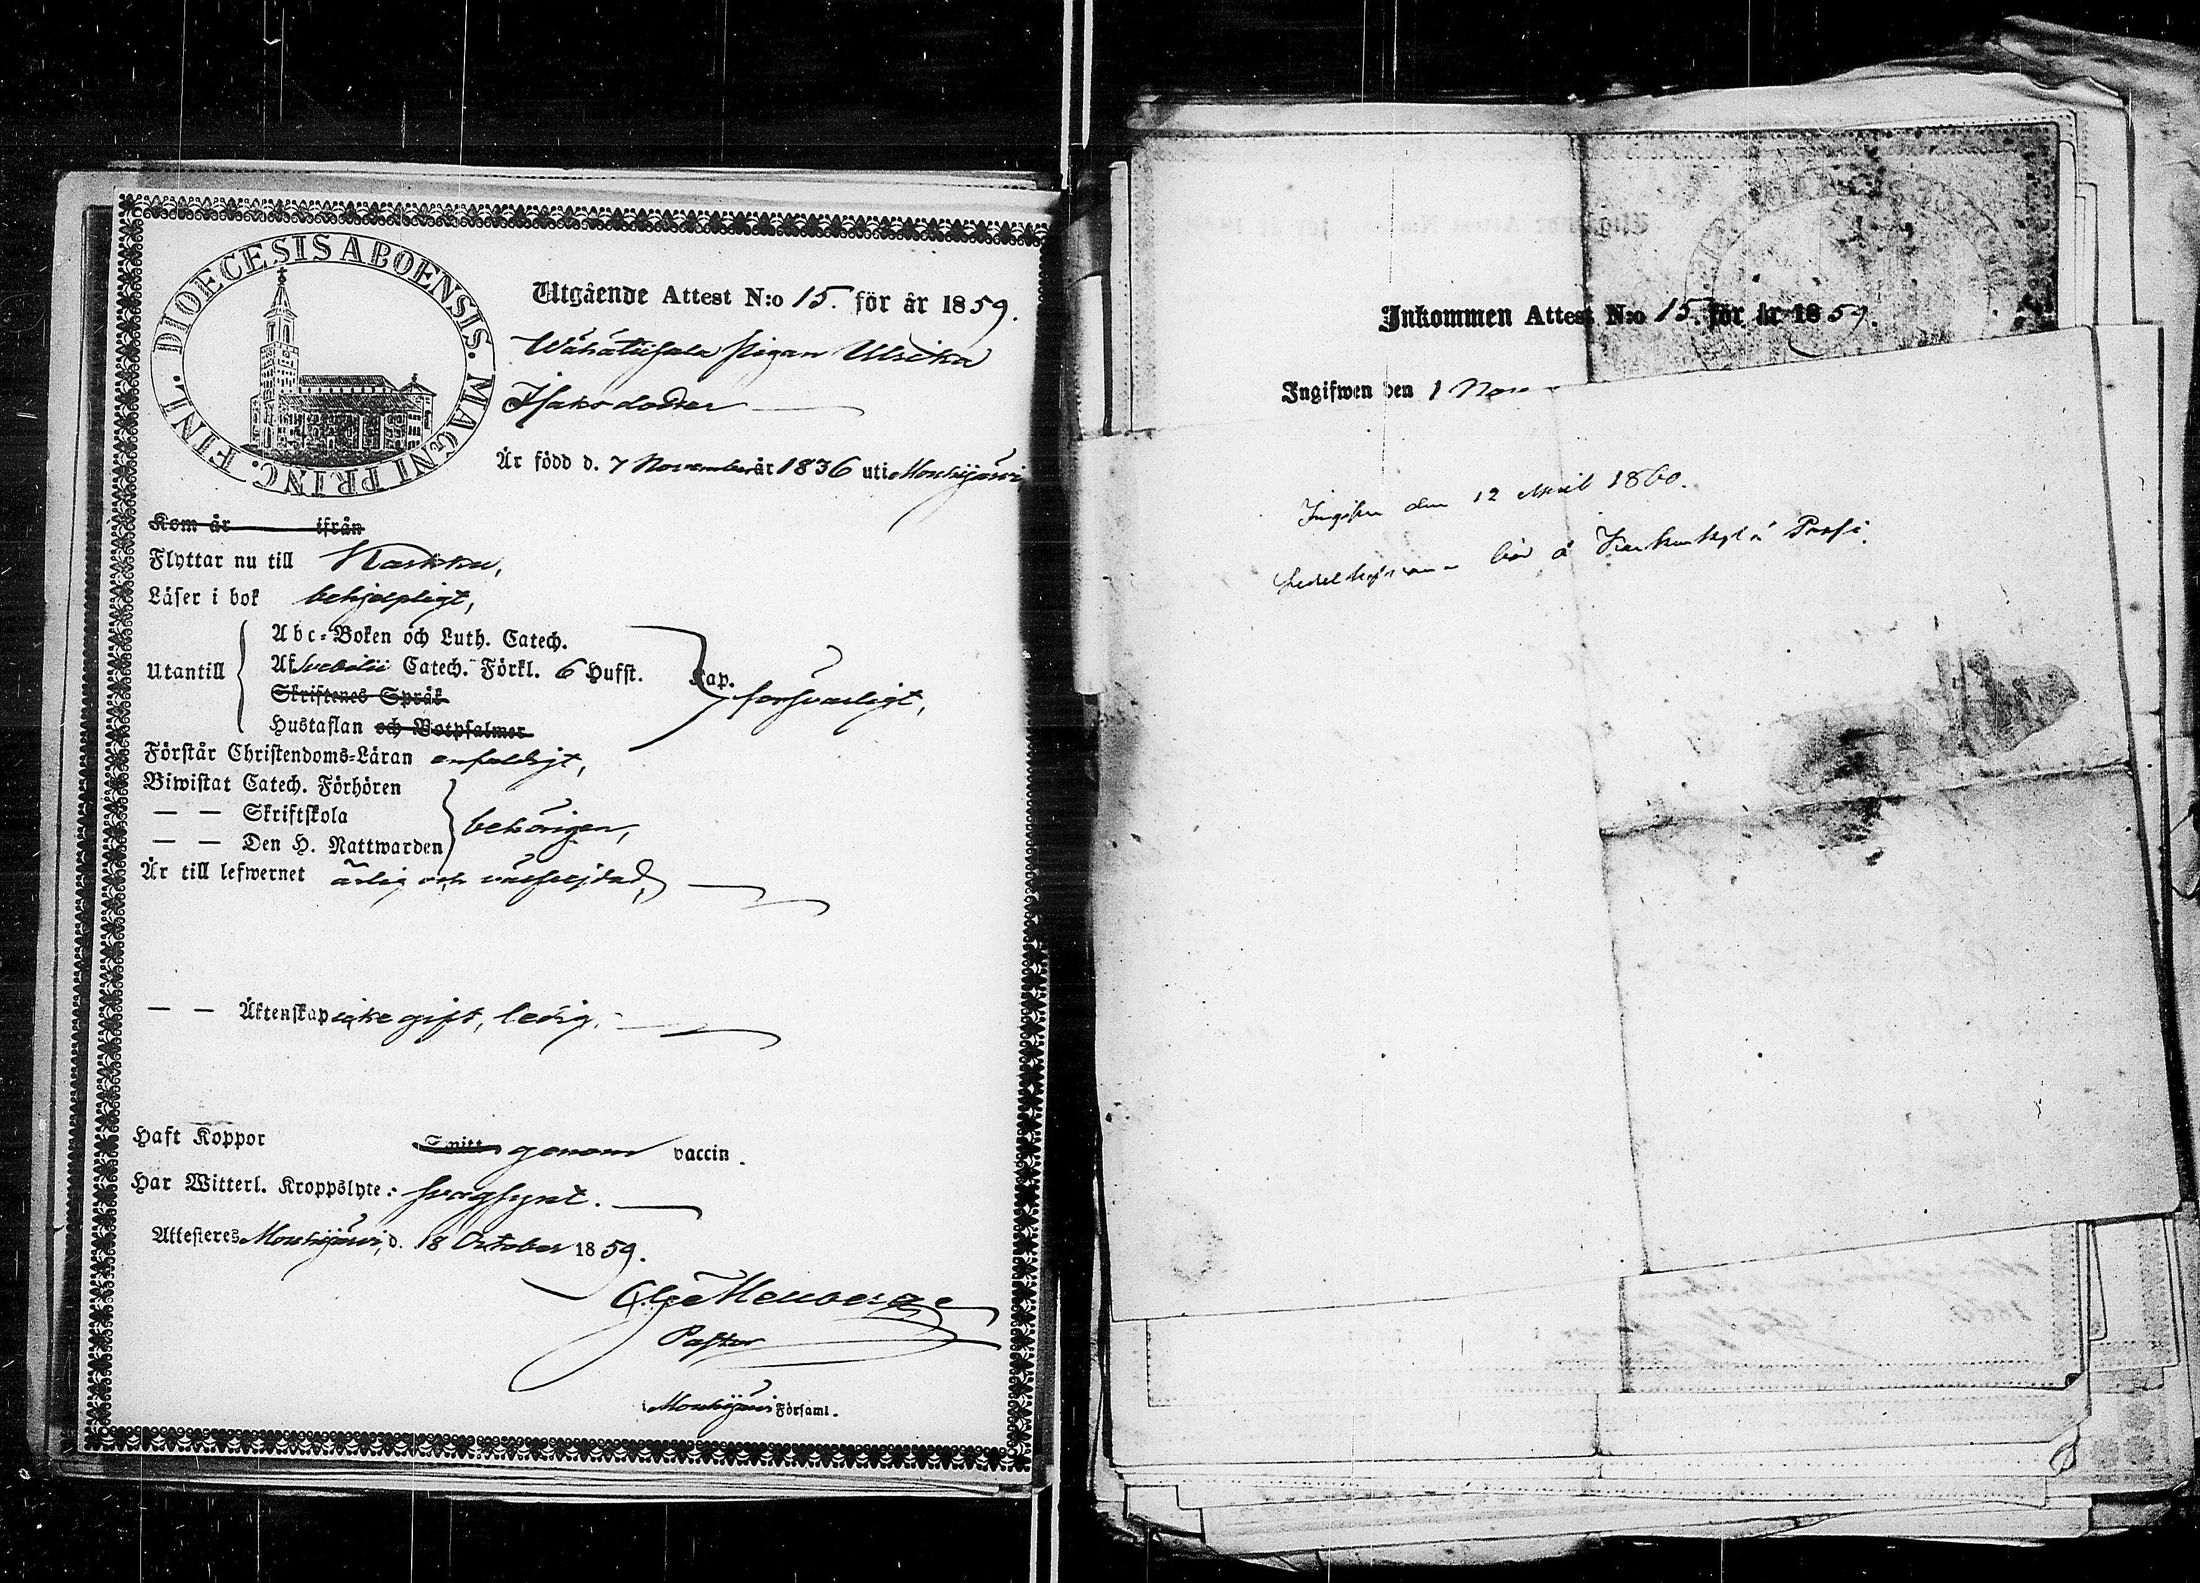 DIOECESIS ABOENSIS. MAGNI PRINC. FINL.
Utgående Attest N:o 15. för år 1859.
Wähätiisala pigan Ulrika
Isaksdotter
Är född d. 7 November år 1836 uti Mouhijärvi
Kom år ifrån
Flyttar nu till Karkku,
Läser i bok behjelpligt,
Utantill
Abc-Boken och Luth. Catech.
Af Svebilii Catech. Förkl. 6 Hufst. Kap.
Skriftenes Språk
Hustaflan och Botpsalmer
försvarligt,
Förstår Christendoms-Läran enfaldigt,
Biwistat Catech. Förhören
— — Skriftskola
— — Den H. Nattwarden
behörigen,
Är till lefwernet ärlig och välfrejdad,
— — Äktenskap icke gift, ledig.
Haft Koppor Smitt genom vaccin.
Har Witterl. Kroppslyte: svagsynt.
Attesteres Mouhijärvi, d. 18 October 1859.
Pastor
i Mouhijärvi Församl.
Inkommen Attest N:o 15. för år 1859.
Ingifwen den 1 Nov
Ingifven den 12 April 1860.
bör å Karkunkylä